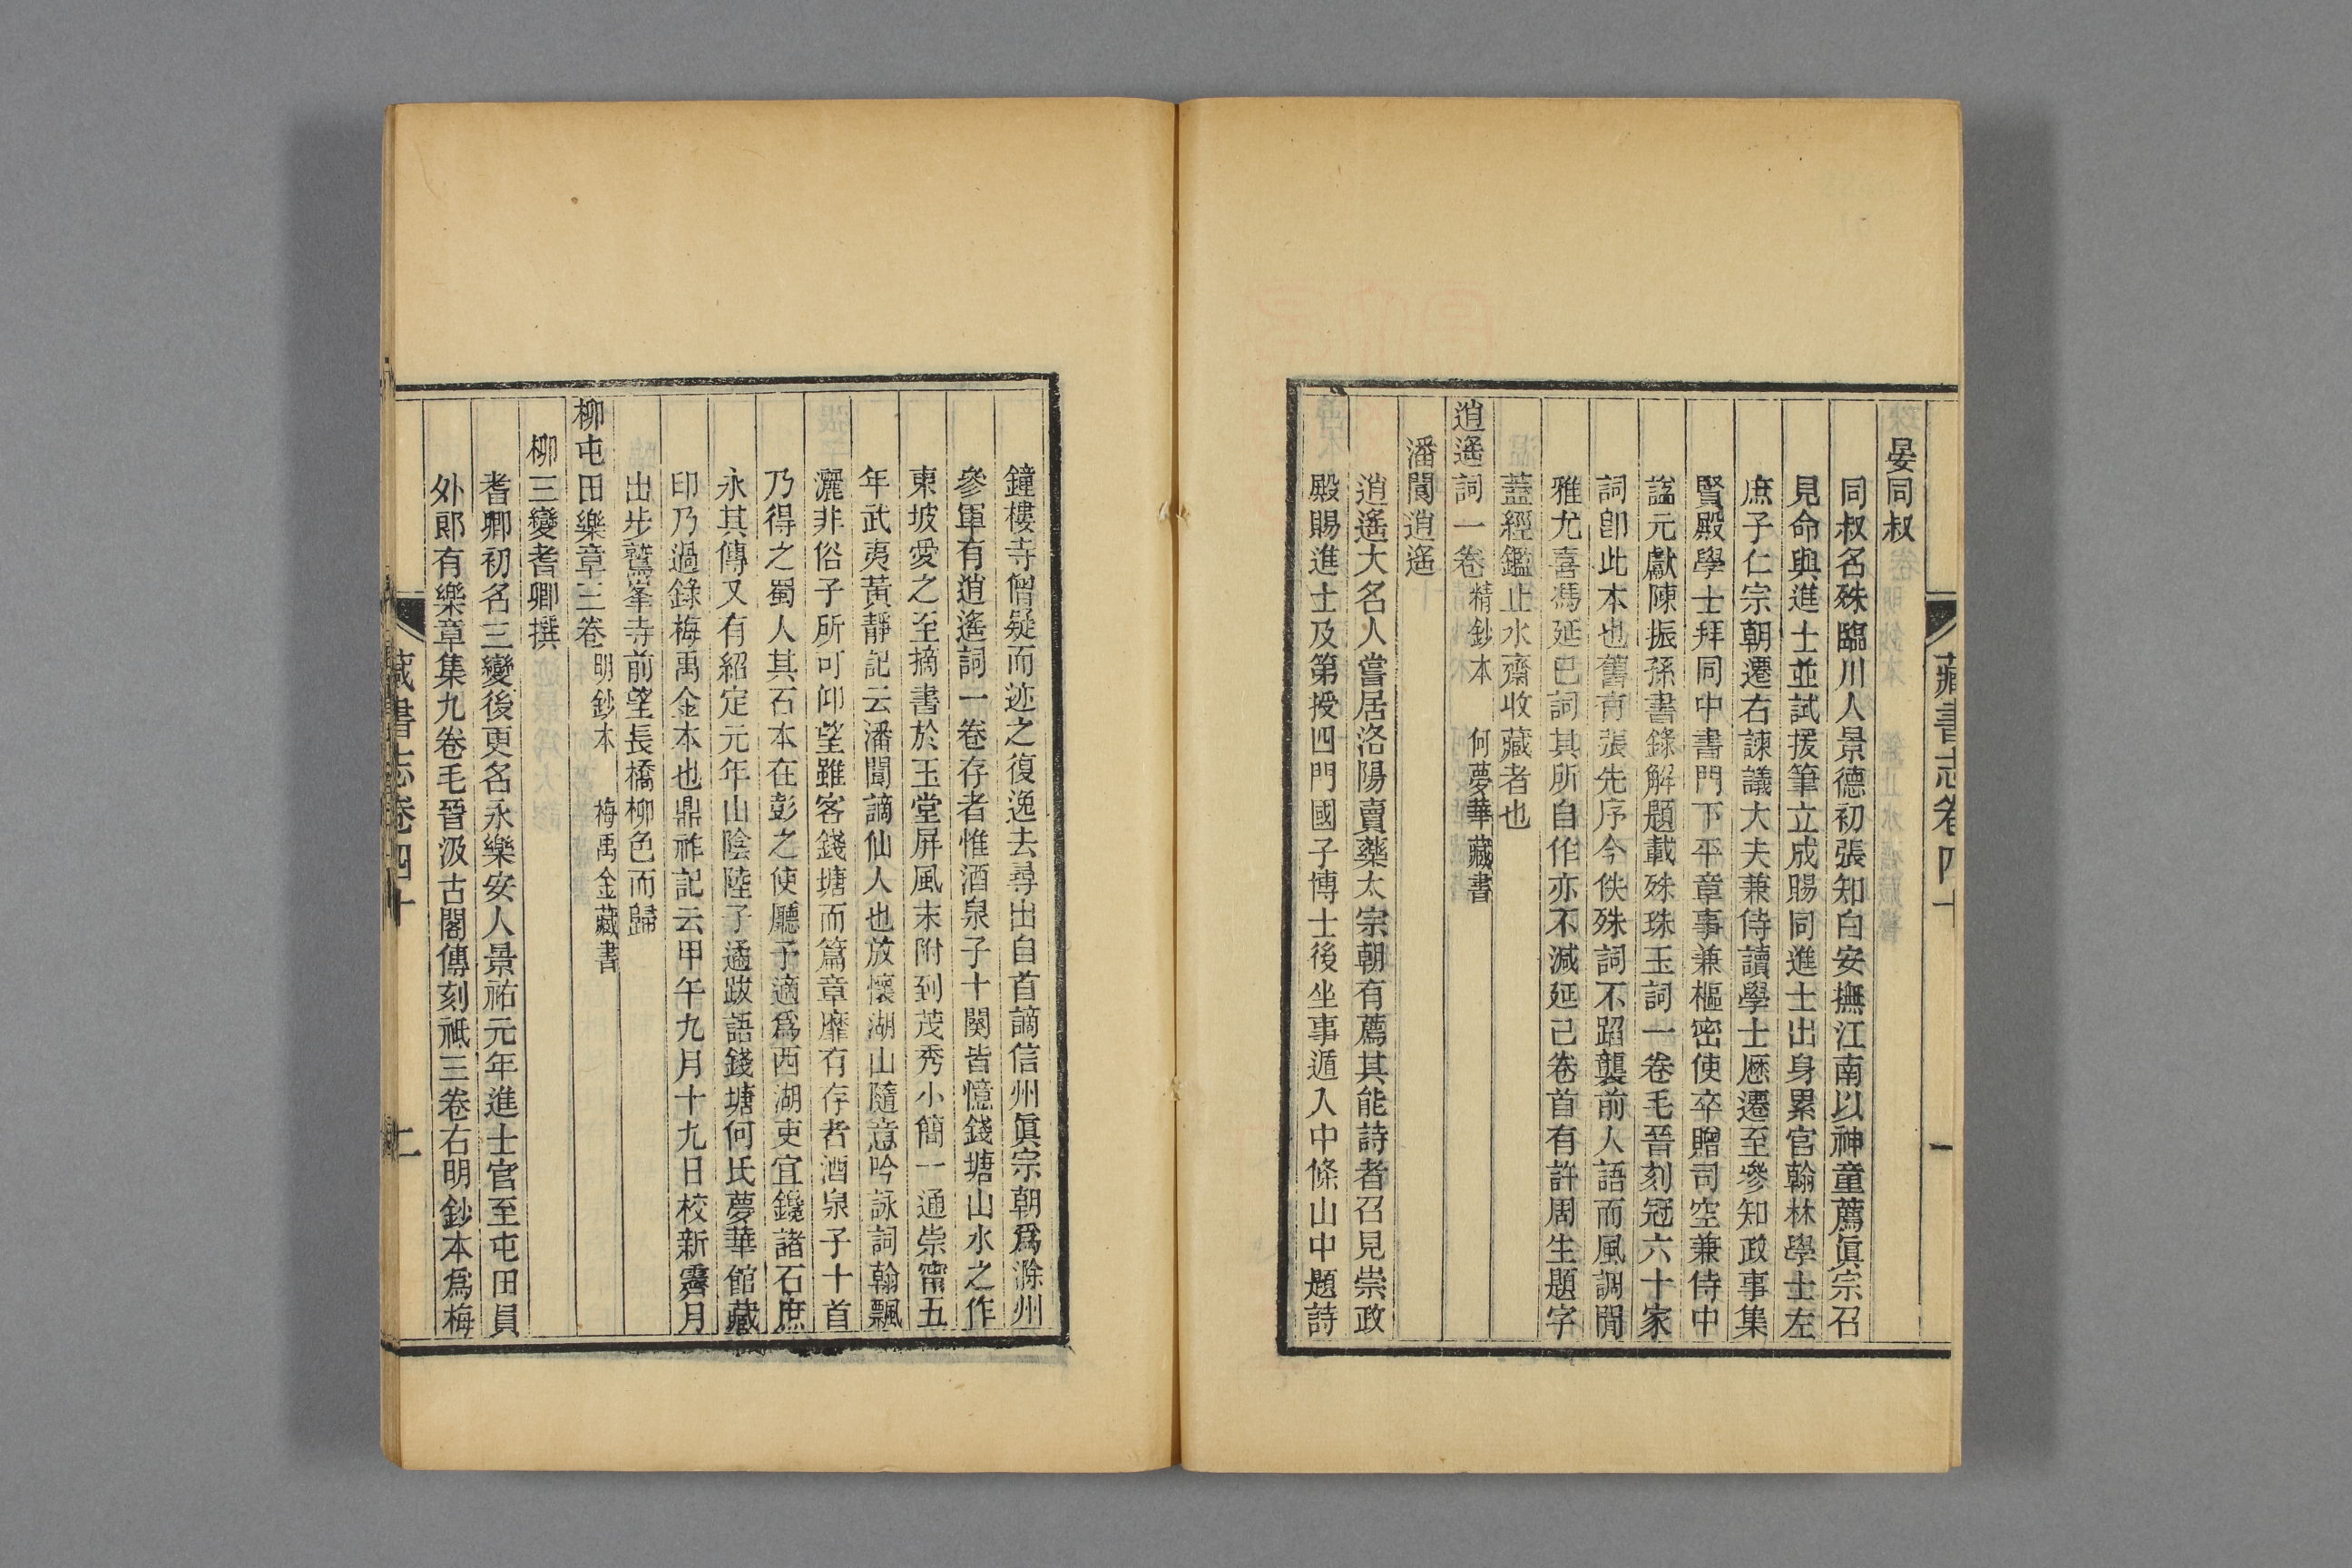 藏書志卷四十
一
晏同叔
同叔名殊臨川人景德初張知白安撫江南以神童薦眞宗召
見命與進士並試援筆立成賜同進士出身累官翰林學士左
庶子仁宗朝遷右諫議大夫兼侍讀學士歷遷至參知政事集
賢殿學士拜同中書門下平章事兼樞密使卒贈司空兼侍中
諡元獻陳振孫書錄解題載殊珠玉詞一卷毛晉刻冠六十家
詞卽此本也舊有張先序今佚殊詞不蹈襲前人語而風調閒
雅尤喜馮延巳詞其所自作亦不減延己卷首有許周生題字
蓋經鑑止水齋收藏者也
逍遙詞一卷 精鈔本 何夢華藏書
潘閬逍遙
逍遙大名人嘗居洛陽賣藥太宗朝有薦其能詩者召見崇政
殿賜進士及第授四門國子博士後坐事遁入中條山中題詩
鐘樓寺僧疑而迹之復逸去尋出自首謫信州眞宗朝爲滁州
參軍有逍遙詞一卷存者惟酒泉子十闋皆憶錢塘山水之作
東坡愛之至摘書於玉堂屏風末附到茂秀小簡一通崇甯五
年武夷黃靜記云潘閬謫仙人也放懷湖山隨意吟詠詞翰飄
灑非俗子所可仰望雖客錢塘而篇章靡有存者酒泉子十首
乃得之蜀人其石本在彭之使廳予適爲西湖吏宜鑱諸石庶
永其傳又有紹定元年山陰陸子遹跋語錢塘何氏夢華館藏
印乃過錄梅禹金本也鼎祚記云甲午九月十九日校新霽月
出步鷲峯寺前望長橋柳色而歸
柳屯田樂章三卷 明鈔本 梅禹金藏書
柳三變耆卿撰
耆卿初名三變後更名永樂安人景祐元年進士官至屯田員
外郞有樂章集九卷毛晉汲古閣傳刻祇三卷右明鈔本爲梅
藏書志卷四十
二